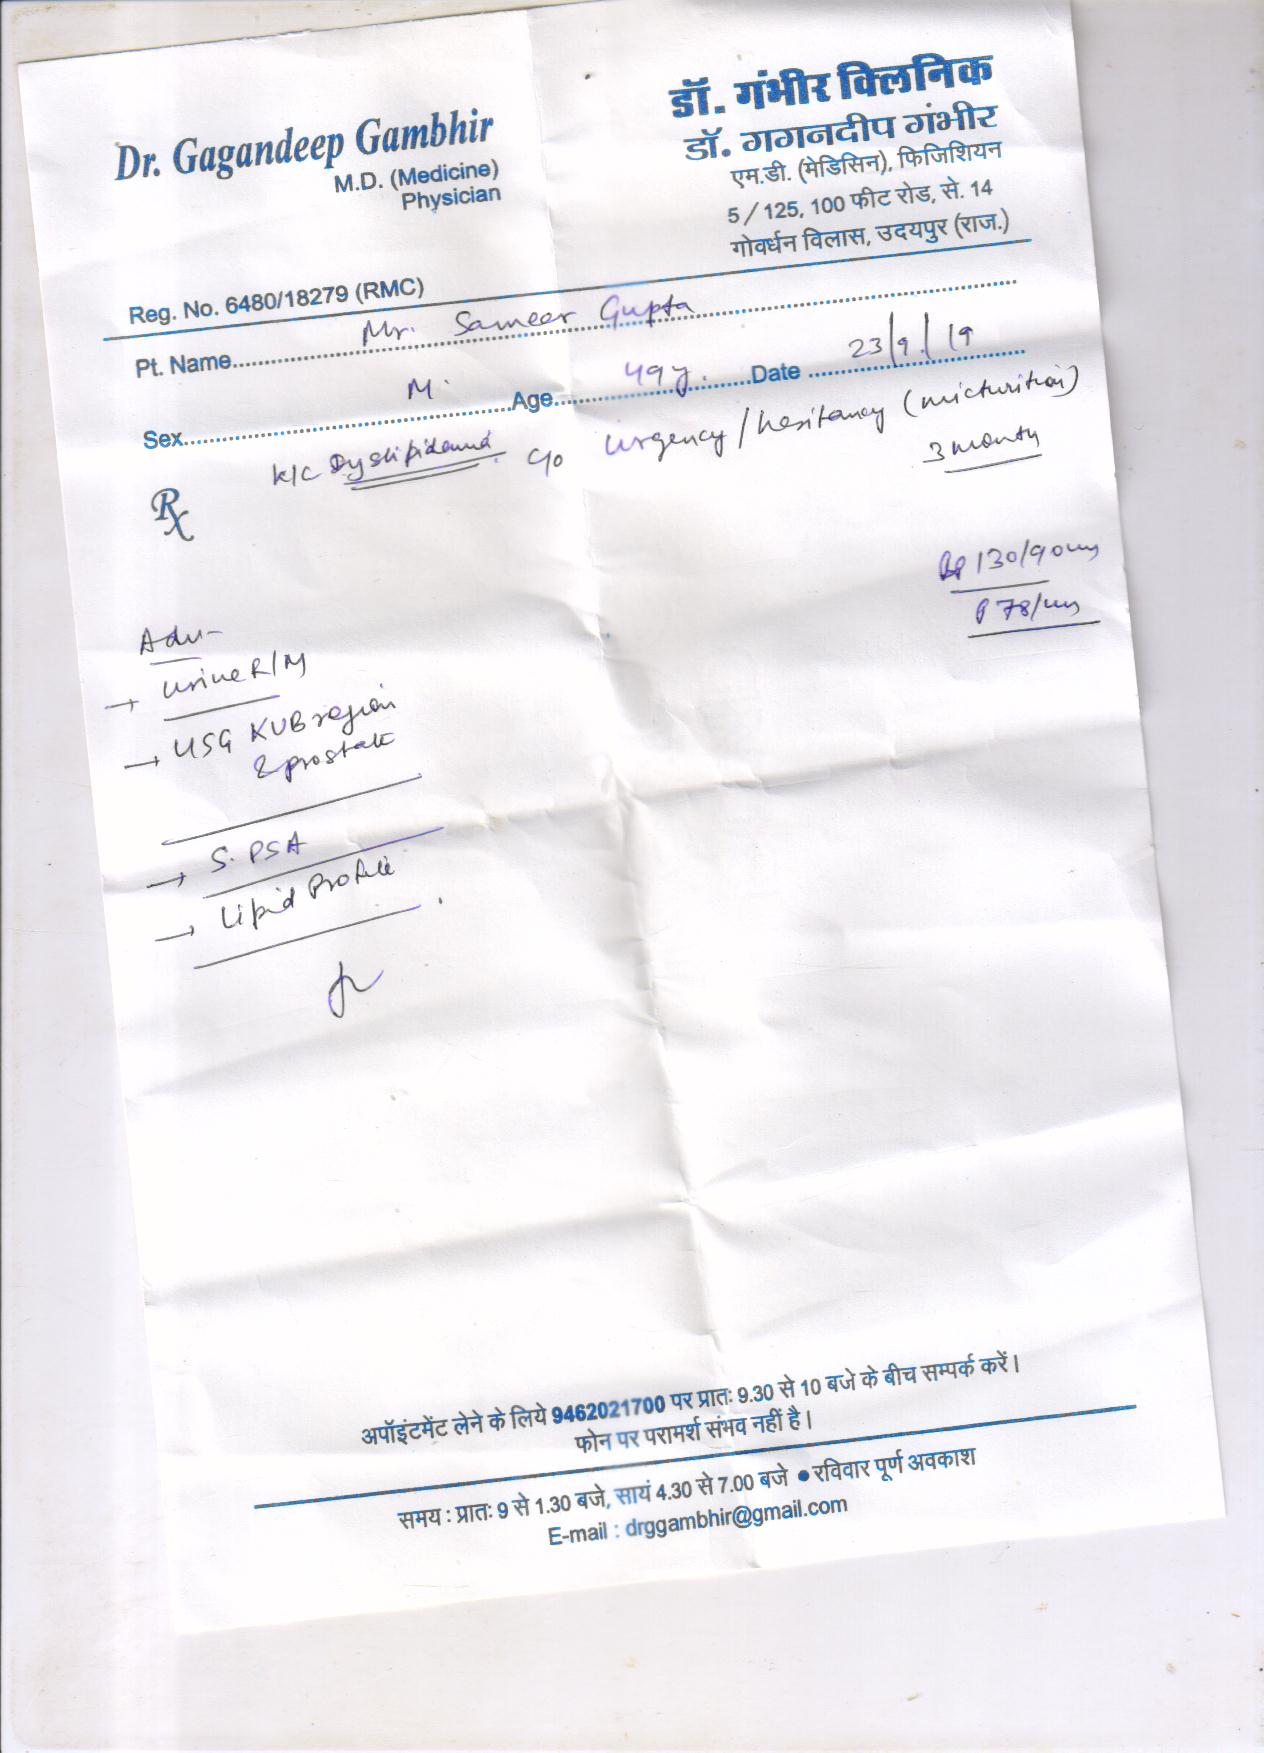 Dr. Gagandeep Gambhir
M.D. (Medicine)
Physician
Reg. No. 6480/18279 (RMC)
डॉ. गंभीर क्लिनिक
डॉ. गगनदीप गंभीर
एम.डी. (मेडिसिन), फिजिशियन
5/125, 100 फीट रोड, से. 14
गोवर्धन विलास, उदयपुर (राज.)
Pt. Name Mr. Sameer Gupta
Sex M. Age 49y. Date 23/9/19
K/C Dyslipidemia c/o urgency/hesitancy (micturition)
3 month
Rx
BP 130/90
P 78/
Adv-
→ Urine R/M
→ USG KUB region
& prostate
→ S. PSA
→ Lipid Profile
अपॉइंटमेंट लेने के लिये 9462021700 पर प्रातः 9.30 से 10 बजे के बीच सम्पर्क करें।
फोन पर परामर्श संभव नहीं है।
समय : प्रातः 9 से 1.30 बजे, सायं 4.30 से 7.00 बजे ● रविवार पूर्ण अवकाश
E-mail : drggambhir@gmail.com